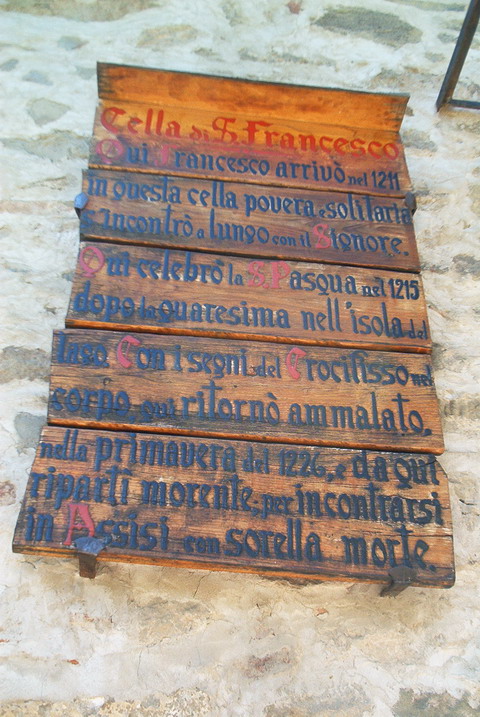 Cella di S. Francesco
Qui Francesco arrivò nel 1211
in questa cella povera e solitaria
s'incontrò a lungo con il Signore.
Qui celebrò la S. Pasqua nel 1215
dopo la quaresima nell'isola del
lago. Con i segni del Crocifisso nel
corpo, qui ritornò ammalato,
nella primavera del 1226, e da qui
riparti morente, per incontrarsi
in Assisi con sorella morte.